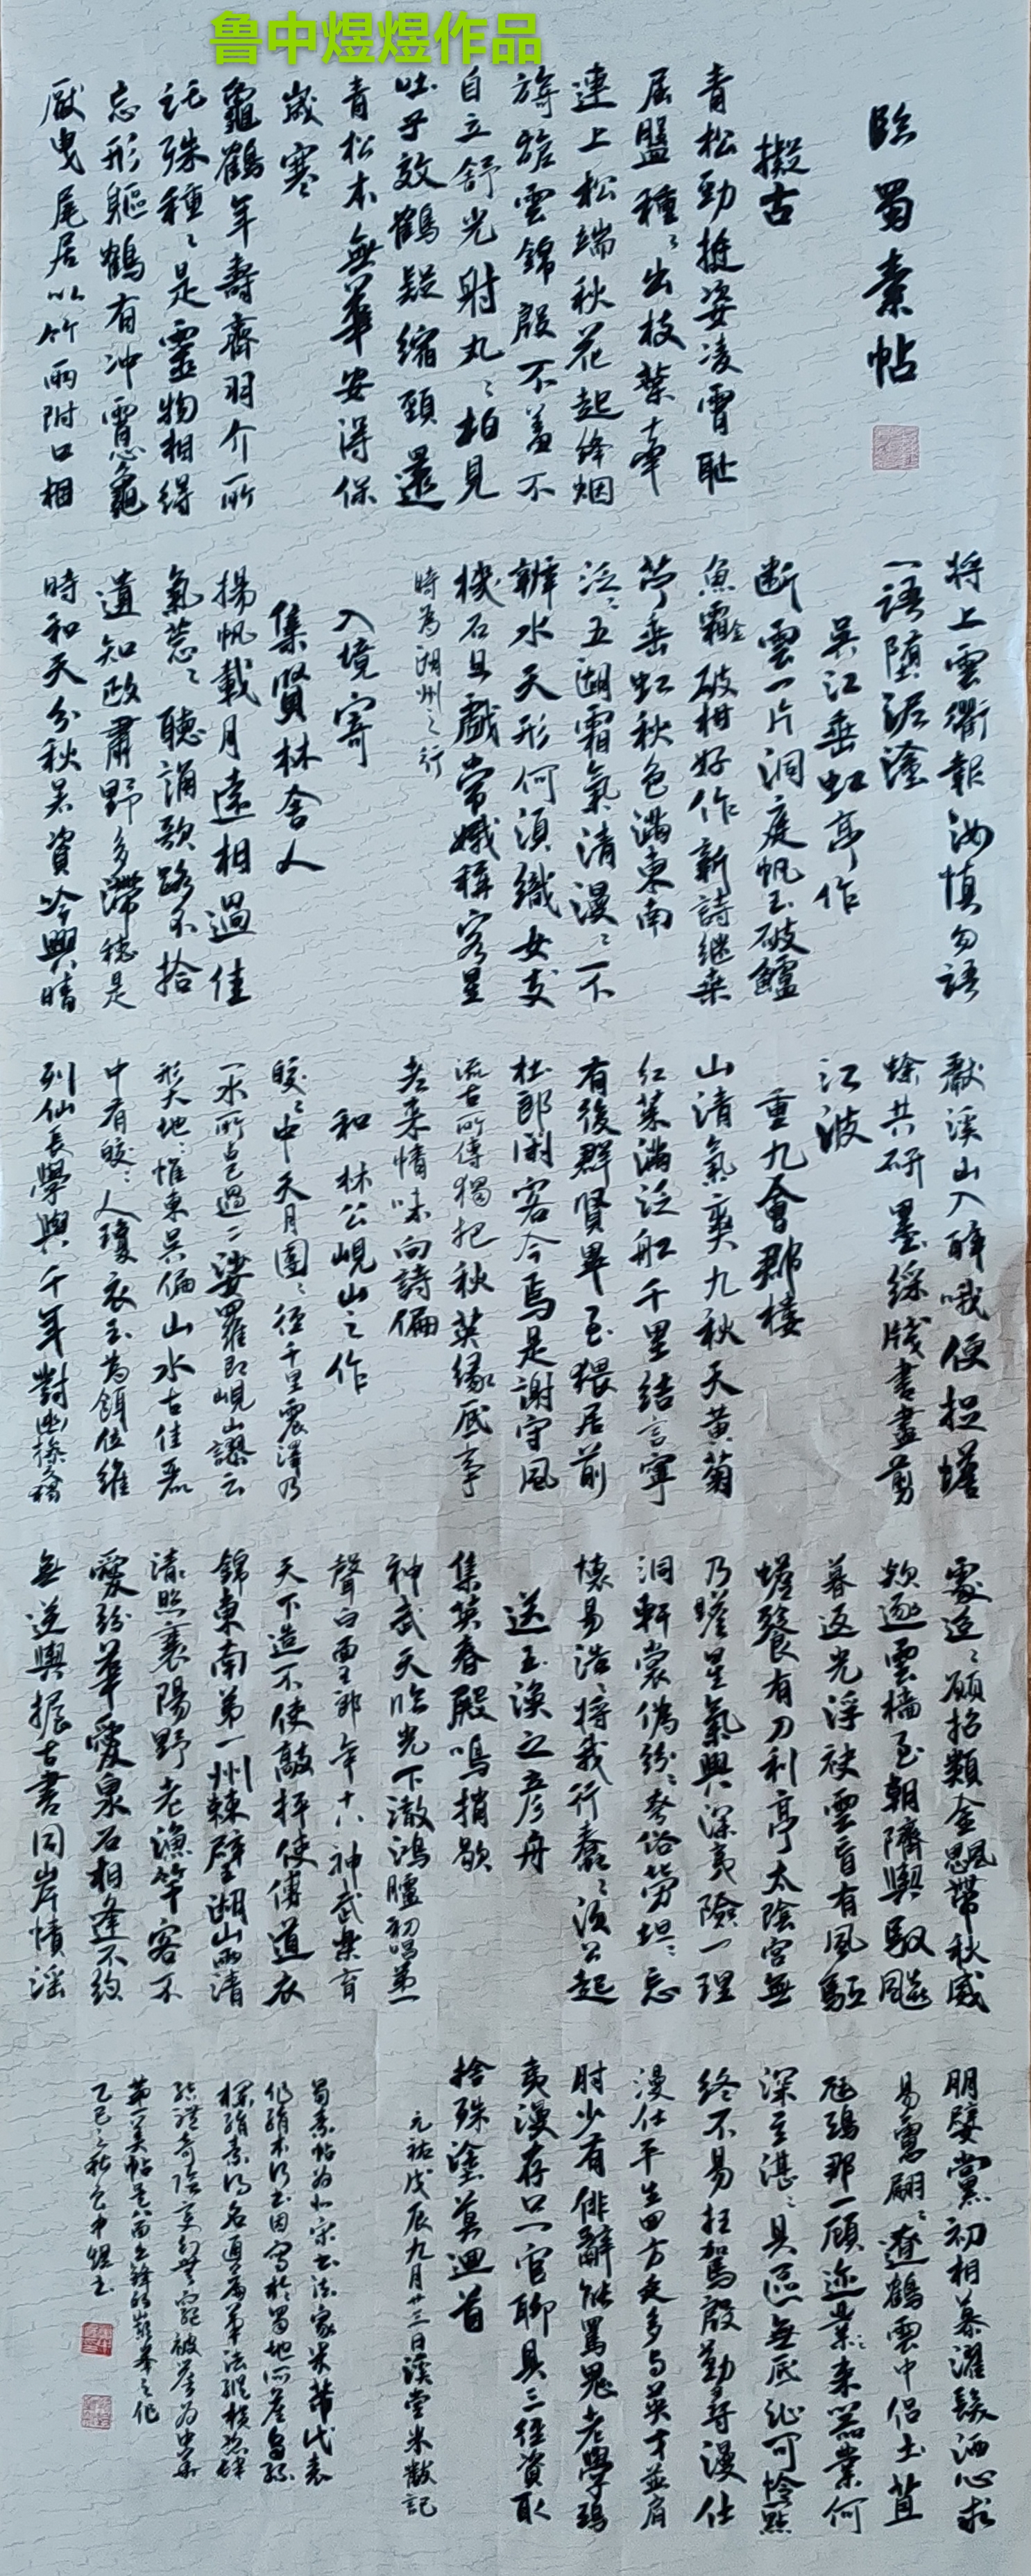 鲁中煜煜作品
临蜀素帖
擬古
青松勁挺姿凌霄恥
屈盤種〻出枝葉牽
連上松端秋花起絳烟
旖旎雲錦殷不羞不
自立舒光射丸〻柏見
吐子效鶴疑縮頸還
青松本無華安得保
歲寒
龜鶴年壽齊羽介所
託殊種〻是靈物相得
忘形軀鶴有冲霄心龜
厭曳尾居以竹兩附口相
将上雲衢報汝慎勿語
一語墮泥塗
吳江垂虹亭作
断雲一片洞庭帆玉破鱸
魚霜金破柑好作新詩継桑
苧垂虹秋色滿東南
泛〻五湖霜氣清漫〻不
辨水天形何須織女支
機石且戲常娥稱客星
時為湖州之行
入境寄
集賢林舍人
揚帆載月遠相過佳
氣葱〻聽誦歌路不拾
遺知政肅野多滯穗是
時和天分秋暑資吟興晴
獻溪山入醉哦便捉蟾
蜍共研墨綵牋書盡剪
江波
重九會郡樓
山清氣爽九秋天黄菊
红茱滿泛船千里結言寧
有後群賢畢至猥居前
杜郎閑客今焉是謝守風
流古所傳獨把秋英緣底事
老来情味向詩偏
和林公峴山之作
皎〻中天月團〻徑千里震澤乃
一水所占已過二娑羅即峴山謬云
形大地〻惟東吳偏山水古佳麗
中有皎〻人瓊衣玉為餌位維
列仙長學與千年對幽操久獨
處迢〻願招類金飈帶秋威
欻逐雲檣至朝隮輿馭飈
暮返光浮袂雲盲有風駈
蟾餮有刀利亭太陰宫無
乃瞠星氣興深夷險一理
洞軒裳偽紛〻夸俗勞坦〻忘
懷易浩〻将我行蠢〻須公起
送王渙之彦舟
集英春殿鳴捎歇
神武天臨光下澈鴻臚初唱第一
聲白面王郎年十八神武樂育
天下造不使敲抨使傳道衣
錦東南第一州棘璧湖山兩清
照襄陽野老漁竿客不
愛紛華愛泉石相逢不約
無逆與握古書同岸幘淫
朋嬖黨初相慕濯髮洒心求
易慮翩〻遼鶴雲中侣土苴
尪鵄那一顧迩来器業何
深至湛〻具區無底沚可憐點
終不易枉駕殷勤尋漫仕
漫仕平生四方走多与英才並肩
肘少有俳辭能罵鬼老學鵄
夷漫存口一官聊具三徑資取
捨殊塗莫迴首
元祐戊辰九月廿三日溪堂米黻記